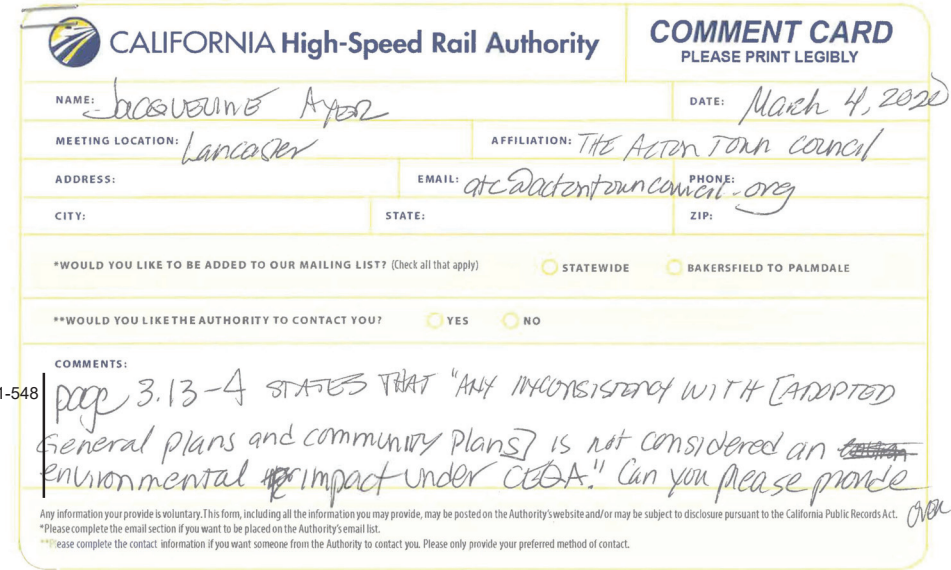 CALIFORNIA High-Speed Rail Authority
COMMENT CARD
PLEASE PRINT LEGIBLY
NAME: Jacqueline Ayer
DATE: March 4, 2020
MEETING LOCATION: Lancaster
AFFILIATION: THE ACTON TOWN COUNCIL
ADDRESS:
EMAIL: atc@actontowncouncil.org
PHONE:
CITY:
STATE:
ZIP:
*WOULD YOU LIKE TO BE ADDED TO OUR MAILING LIST? (Check all that apply)
STATEWIDE
BAKERSFIELD TO PALMDALE
**WOULD YOU LIKE THE AUTHORITY TO CONTACT YOU?
YES
NO
COMMENTS:
1-548
page 3.13-4 STATES THAT "ANY INCONSISTENCY WITH [ADOPTED
General plans and community Plans] is not considered an
environmental impact under CEQA." Can you please provide
over
Any information your provide is voluntary. This form, including all the information you may provide, may be posted on the Authority's website and/or may be subject to disclosure pursuant to the California Public Records Act.
*Please complete the email section if you want to be placed on the Authority's email list.
**Please complete the contact information if you want someone from the Authority to contact you. Please only provide your preferred method of contact.